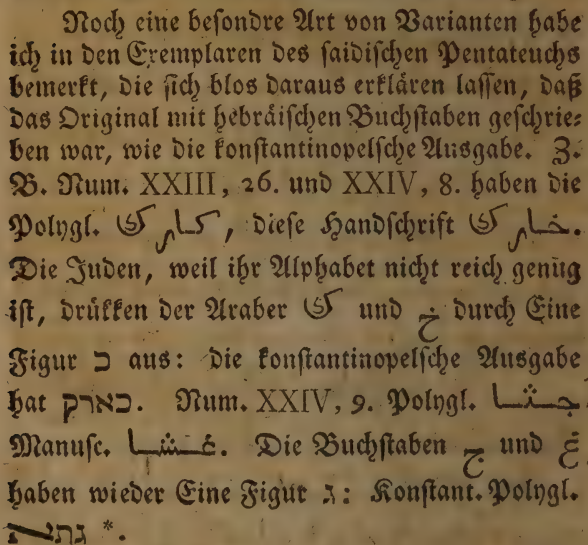 Noch eine beſondre Art von Varianten habe
ich in den Exemplaren des ſaidiſchen Pentateuchs
bemerkt, die ſich blos daraus erklären laſſen, daß
das Original mit hebräiſchen Buchſtaben geſchrie⸗
ben war, wie die konſtantinopelſche Ausgabe. Z.
B. Num. XXIII, 26. und XXIV, 8. haben die
Polygl. كارك, dieſe Handſchrift خارك.
Die Juden, weil ihr Alphabet nicht reich genug
iſt, drükken der Araber ك und خ durch Eine
Figur כ aus: die konſtantinopelſche Ausgabe
hat כארק. Num. XXIV, 9. Polygl. جثا
Manuſc. غشا. Die Buchſtaben ج und غ
haben wieder Eine Figur ג: Konſtant. Polygl.
*.